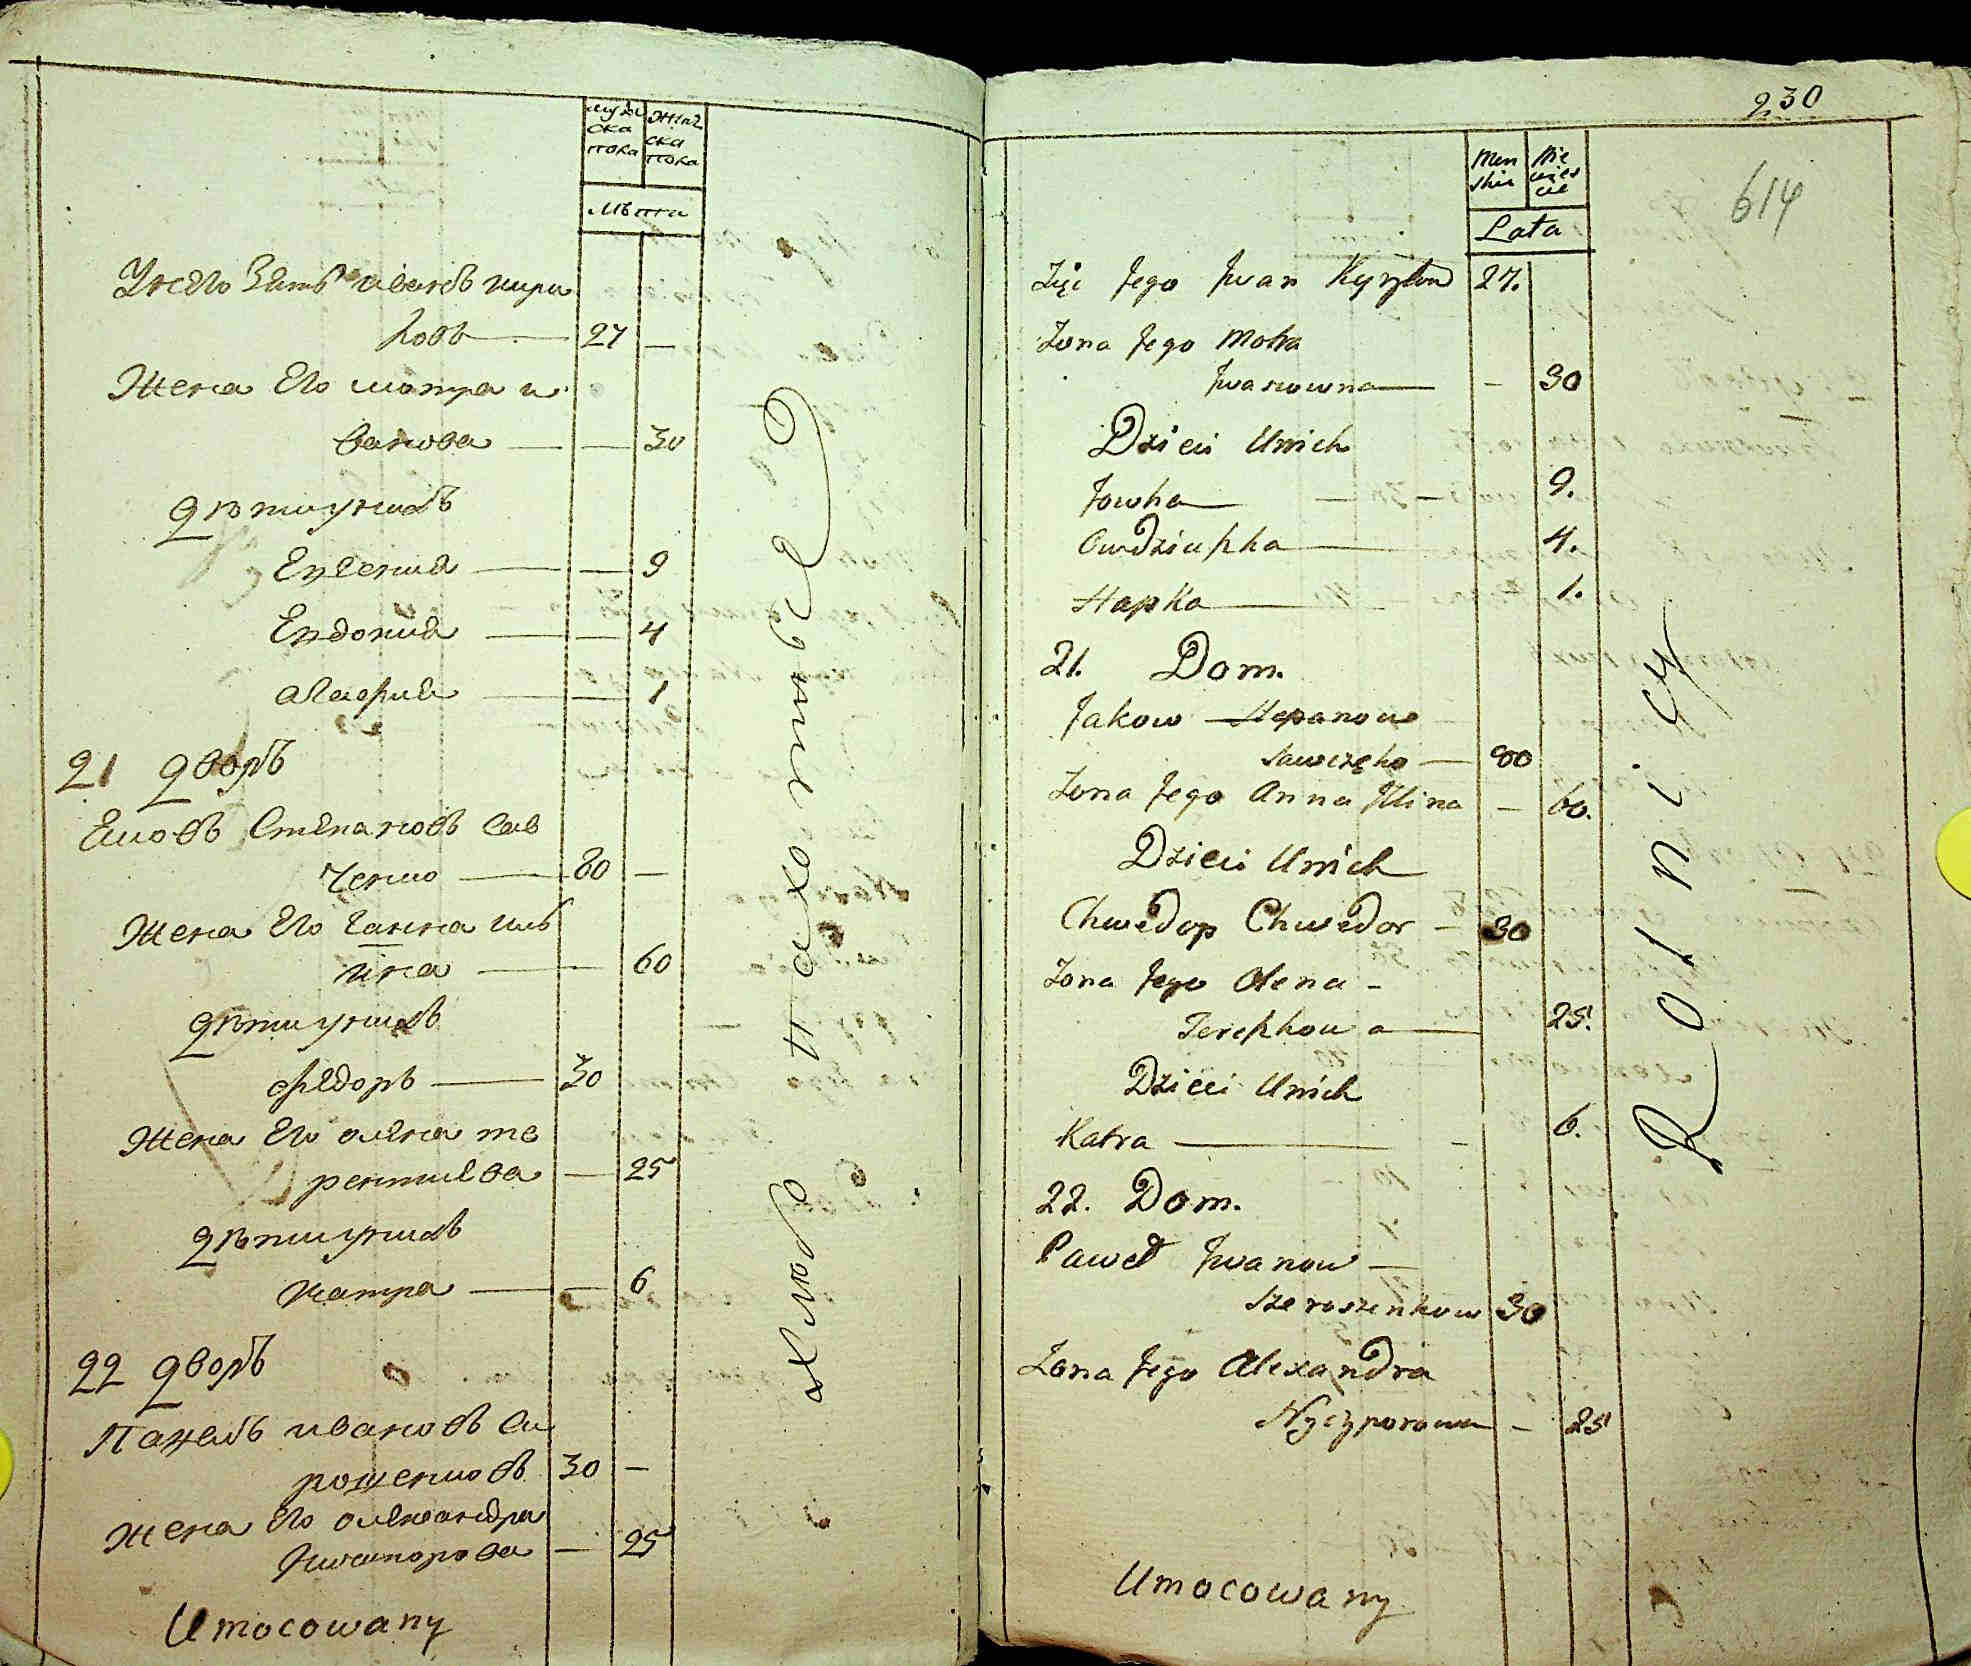 мужеска пола
женска пола
лѣта
У него Зять иванъ кири
ловъ — 27 —
Жена Его мотра и
ванова — — 30
дѣти у нихъ
Евгения — — 9
Евдокия — — 4
Агафия — — 1
21 дворъ
Яковъ Степановъ сав
ченко — 80 —
Жена Его ганна иль
ина — 60
дѣти у нихъ
федоръ — 30
Жена Его олена те
рентиева — 25
дѣти у нихъ
катра — — 6
22 дворъ
Павелъ ивановъ си
рощенковъ 30 —
Жена Его олександра
никипорова — 25
Umocowany
пахотные
люди
230
614
Men skie
Nie wies cie
Lata
Zięć Jego Jwan Kyryłow 27.
Zona Jego Motra
Jwanowna — – 30
Dzieci Unich
Jowha — 9.
Owdziuszka — 4.
Hapka — 1.
21. Dom.
Jakow Stepanow
Sawczęko — 80
Zona Jego Anna Jlina – 60.
Dzieci Unich
Chwedor Chwedor – 30
Zona Jego Olena –
Terefhowa — 25.
Dzieci Unich
Katra — – 6.
22. Dom.
Paweł Jwanow —
Szeroszenkow 30
Zona Jego Alexandra
Nyczyporowa – 25
Umocowany
Rolnicy